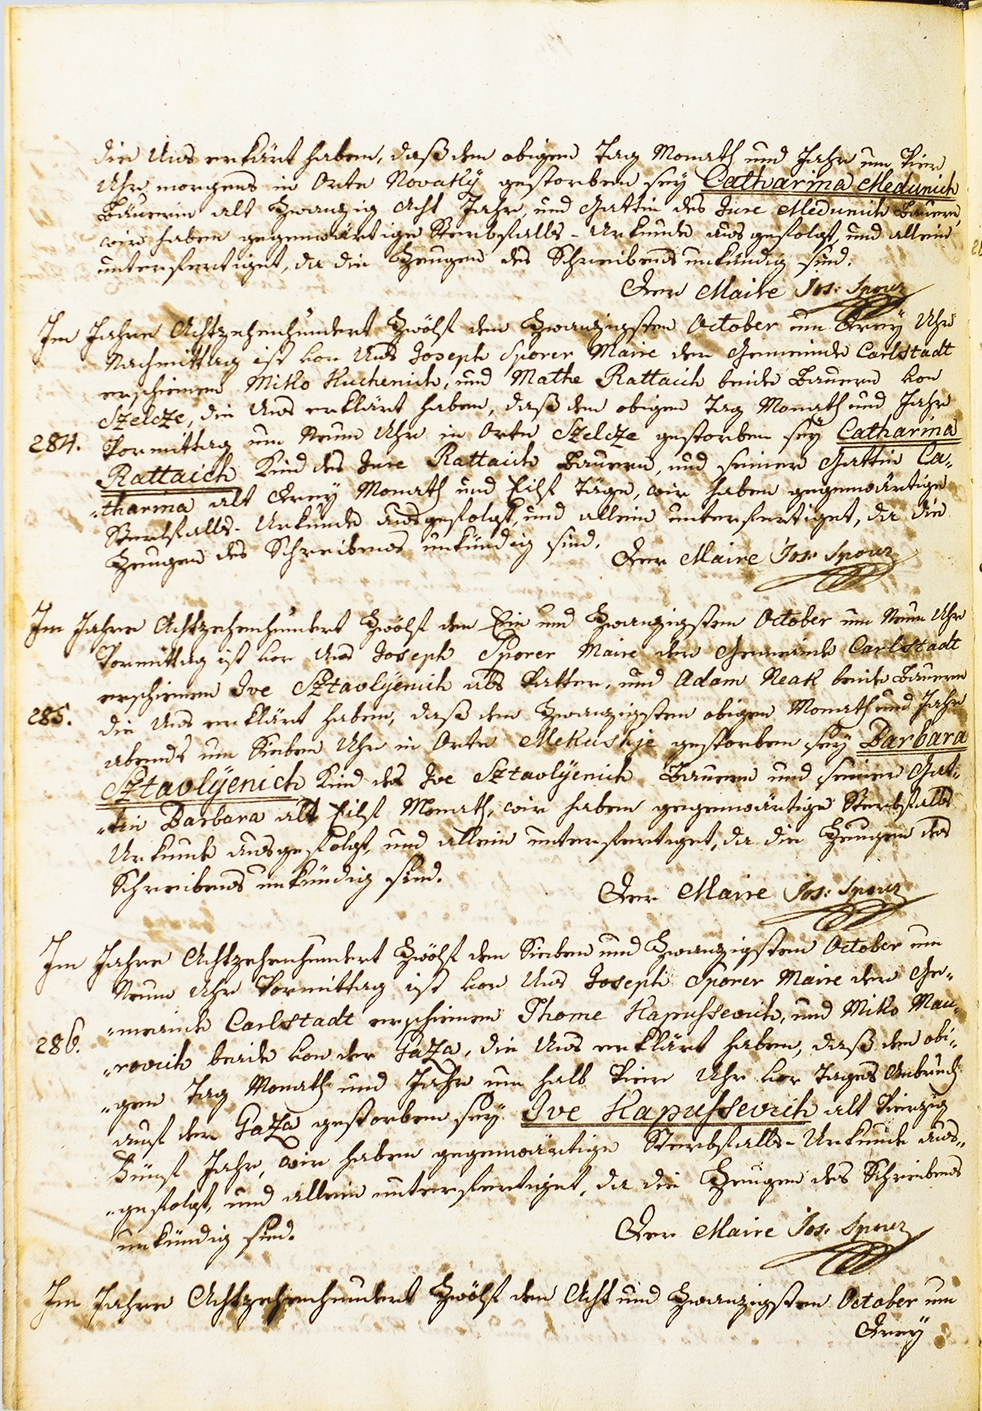 die Uns erklärt haben, daß den obigen Tag Monath und Jahr um Vier
Uhr morgens in Orte Novaky gestorben sey Catharina Medunich
Bäuerin alt Zwanzig Acht Jahr, und Gattin des Jure Medunich Bauern,
wir haben gegenwärtige Sterbfalls-Urkunde ausgefolgt, und allein
unterfertiget, da die Zeugen des Schreibens unkündig sind.
Der Maire Jos: Sporer
Im Jahre Achtzehenhundert Zwölf den Zwanzigsten October um Drey Uhr
Nachmittag ist vor Uns Joseph Sporer Maire der Gemeinde Carlstadt
erschienen Miko Kuchenich, und Mathe Rattaich beide Bauern von
Szelcze, die Uns erklärt haben, daß den obigen Tag Monath und Jahr
284. Vormittag um Neun Uhr in Orte Szelcze gestorben sey Catharina
Rattaich Kind des Jure Rattaich Bauern, und seiner Gattin Ca-
-tharina alt Drey Monath und Eilf Täge, wir haben gegenwärtige
Sterbfalls-Urkunde ausgefolgt, und allein unterfertiget, da die
Zeugen des Schreibens unkündig sind.
Der Maire Jos: Sporer
Im Jahre Achtzehenhundert Zwölf den Ein und Zwanzigsten October um Neun Uhr
Vormittag ist vor Uns Joseph Sporer Maire der Gemeinde Carlstadt
erschienen Ive Sztavlyenich als Vatter, und Adam Neak beide Bauern
285. die Uns erklärt haben, daß den Zwanzigsten obigen Monath und Jahr
abends um Sieben Uhr in Orte Mekushje gestorben sey Barbara
Sztavlyenich Kind des Ive Sztavlyenich Bauern und seiner Gat-
-tin Barbara alt Eilf Monath, wir haben gegenwärtige Sterbfalls
Urkunde ausgefolgt, und allein unterfertiget, da die Zeugen des
Schreibens unkündig sind.
Der Maire Jos: Sporer
Im Jahre Achtzehenhundert Zwölf den Sieben und Zwanzigsten October um
Neun Uhr Vormittag ist vor Uns Joseph Sporer Maire der Ge-
-meinde Carlstadt erschienen Thome Kapussevich, und Miko Mau-
286. -rovich beide von der Gaza, die Uns erklärt haben, daß den obi-
-gen Tag Monath und Jahr um halb Vier Uhr vor Tages Anbruch
auf der Gaza gestorben sey Ive Kapussevich alt Vierzig
Fünf Jahr, wir haben gegenwärtige Sterbfalls-Urkunde aus-
-gefolgt, und allein unterfertiget, da die Zeugen des Schreibens
unkündig sind.
Der Maire Jos: Sporer
Im Jahre Achtzehenhundert Zwölf den Acht und Zwanzigsten October um
Drey